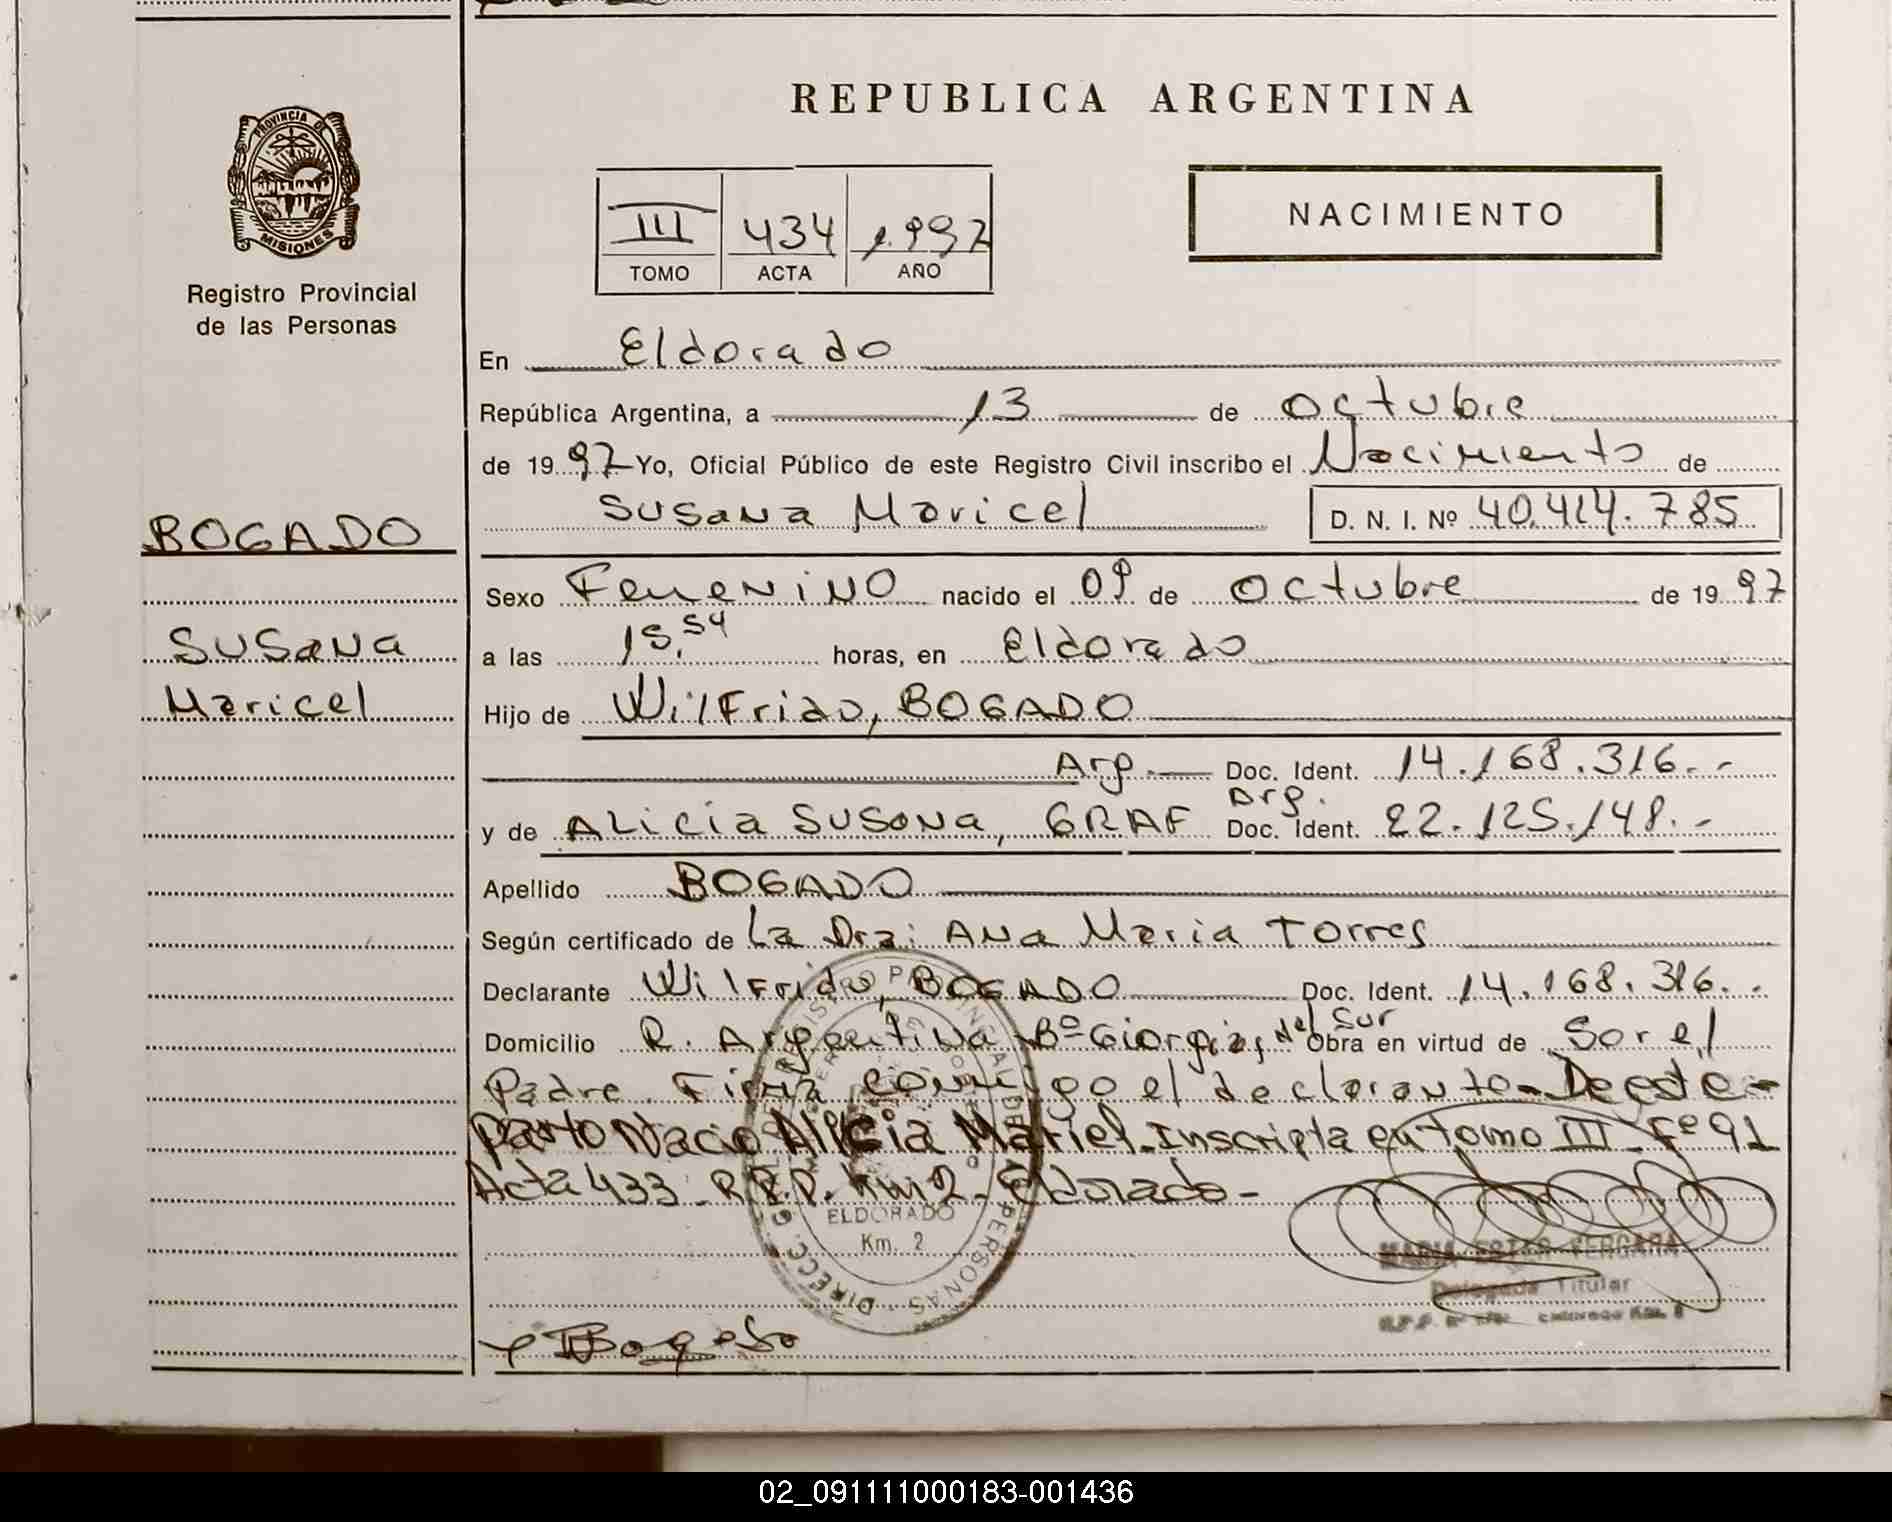 REPUBLICA ARGENTINA
PROVINCIA DE
MISIONES
Registro Provincial
de las Personas
III 434 1.997
TOMO ACTA AÑO
NACIMIENTO
En Eldorado
República Argentina, a 13 de octubre
de 1997 Yo, Oficial Público de este Registro Civil inscribo el Nacimiento de
Susana Maricel D. N. I. Nº 40.414.785
BOGADO
Susana
Maricel
Sexo Femenino nacido el 09 de octubre de 1997
a las 15.54 horas, en Eldorado
Hijo de Wilfrido, BOGADO
Arg. Doc. Ident. 14.168.316.-
Arg.
y de Alicia Susana, GRAF Doc. Ident. 22.125.148.-
Apellido BOGADO
Según certificado de La Dra: Ana Maria Torres
Declarante Wilfrido, BOGADO Doc. Ident. 14.168.316.-
Domicilio R. Argentina Bº del Sur Obra en virtud de Ser el
Padre Firma conmigo el declarante - De este -
parto Nacio Alicia Mariel - Inscripta en tomo III - Fº 91
Acta 433 - R.P.P. Km 2 - Eldorado -
DIRECC. REGISTRO PROVINCIAL DE PERSONAS
ELDORADO
Km. 2
MARIA ESTER VERGARA
Delegada Titular
Bogado
02_091111000183-001436